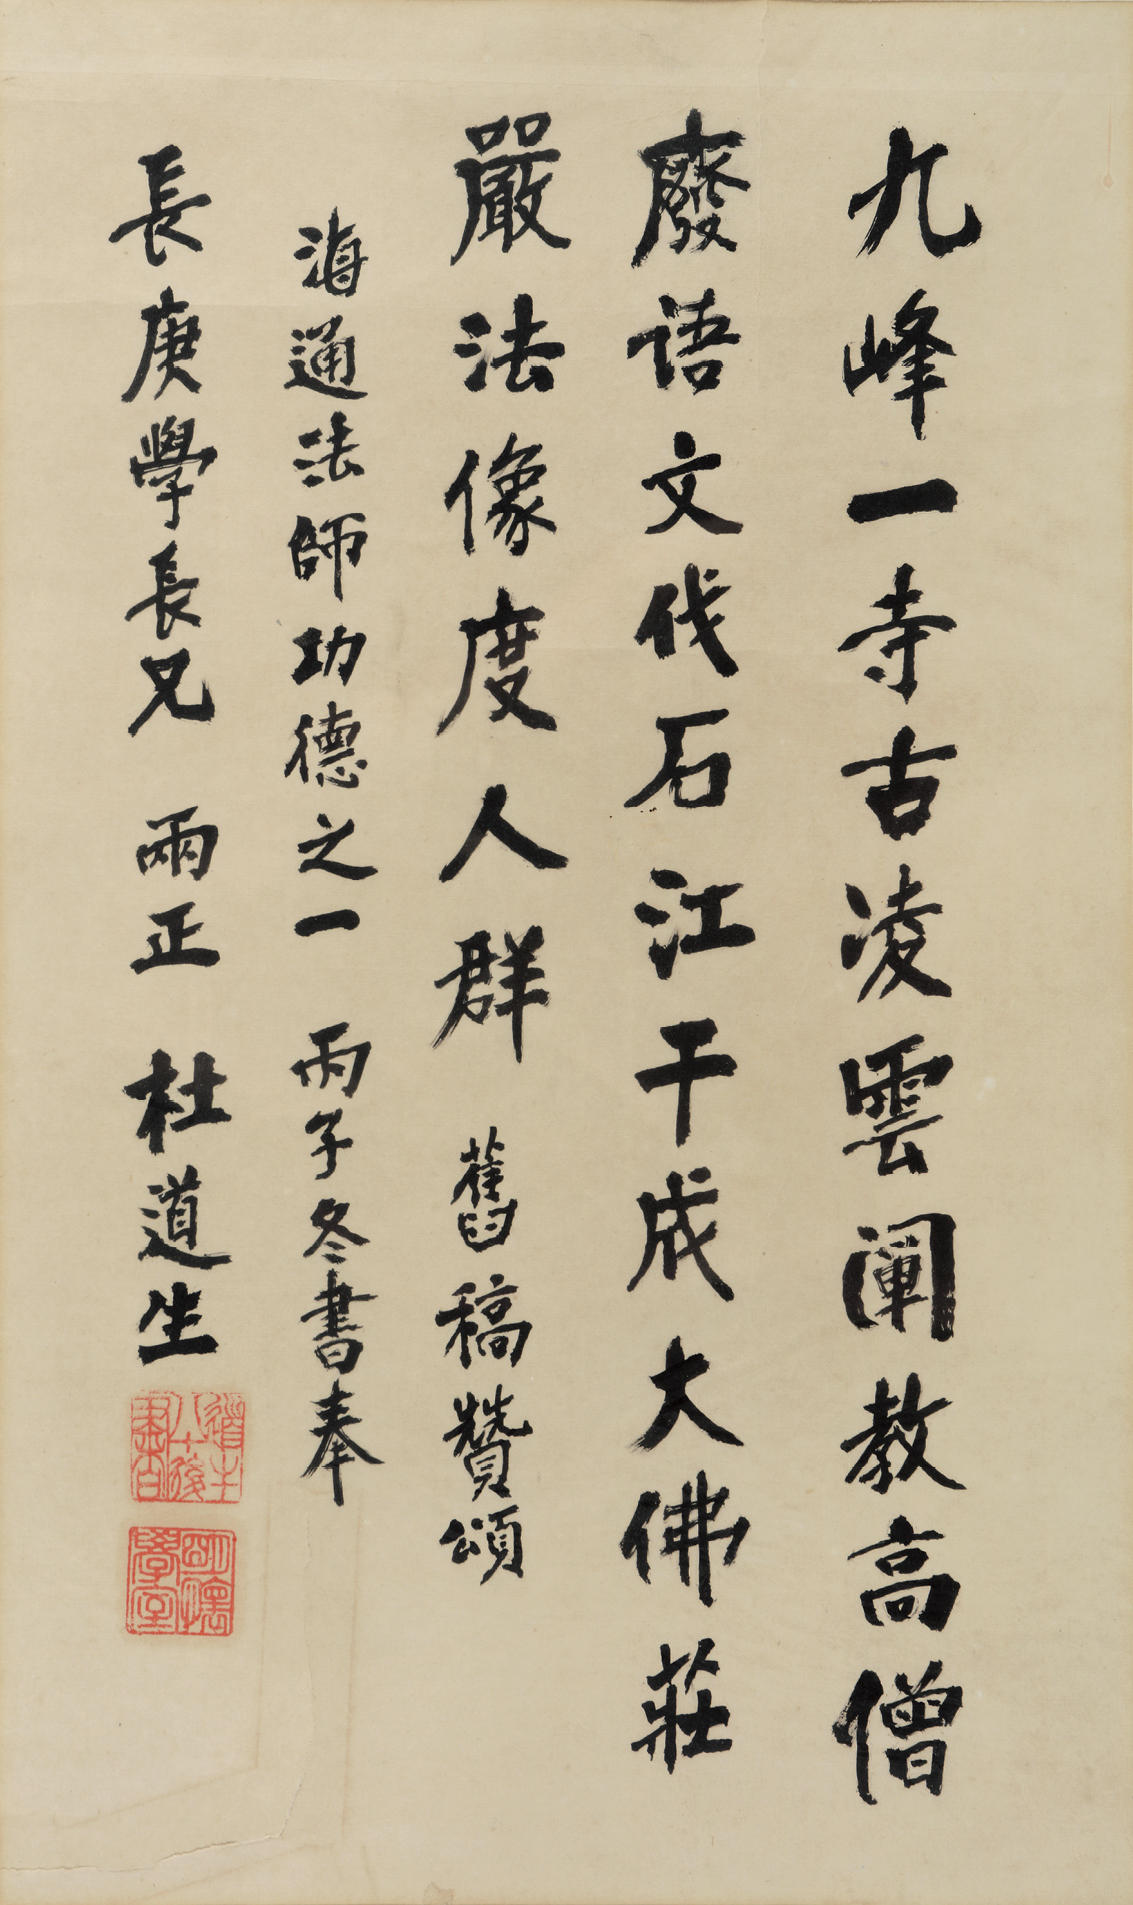 九峰一寺古凌雲阐教高僧
廢语文伐石江干成大佛莊
嚴法像度人群 舊稿贊頌
海通法師功德之一 丙子冬書奉
長庚學長兄 兩正 杜道生
道生八十後書